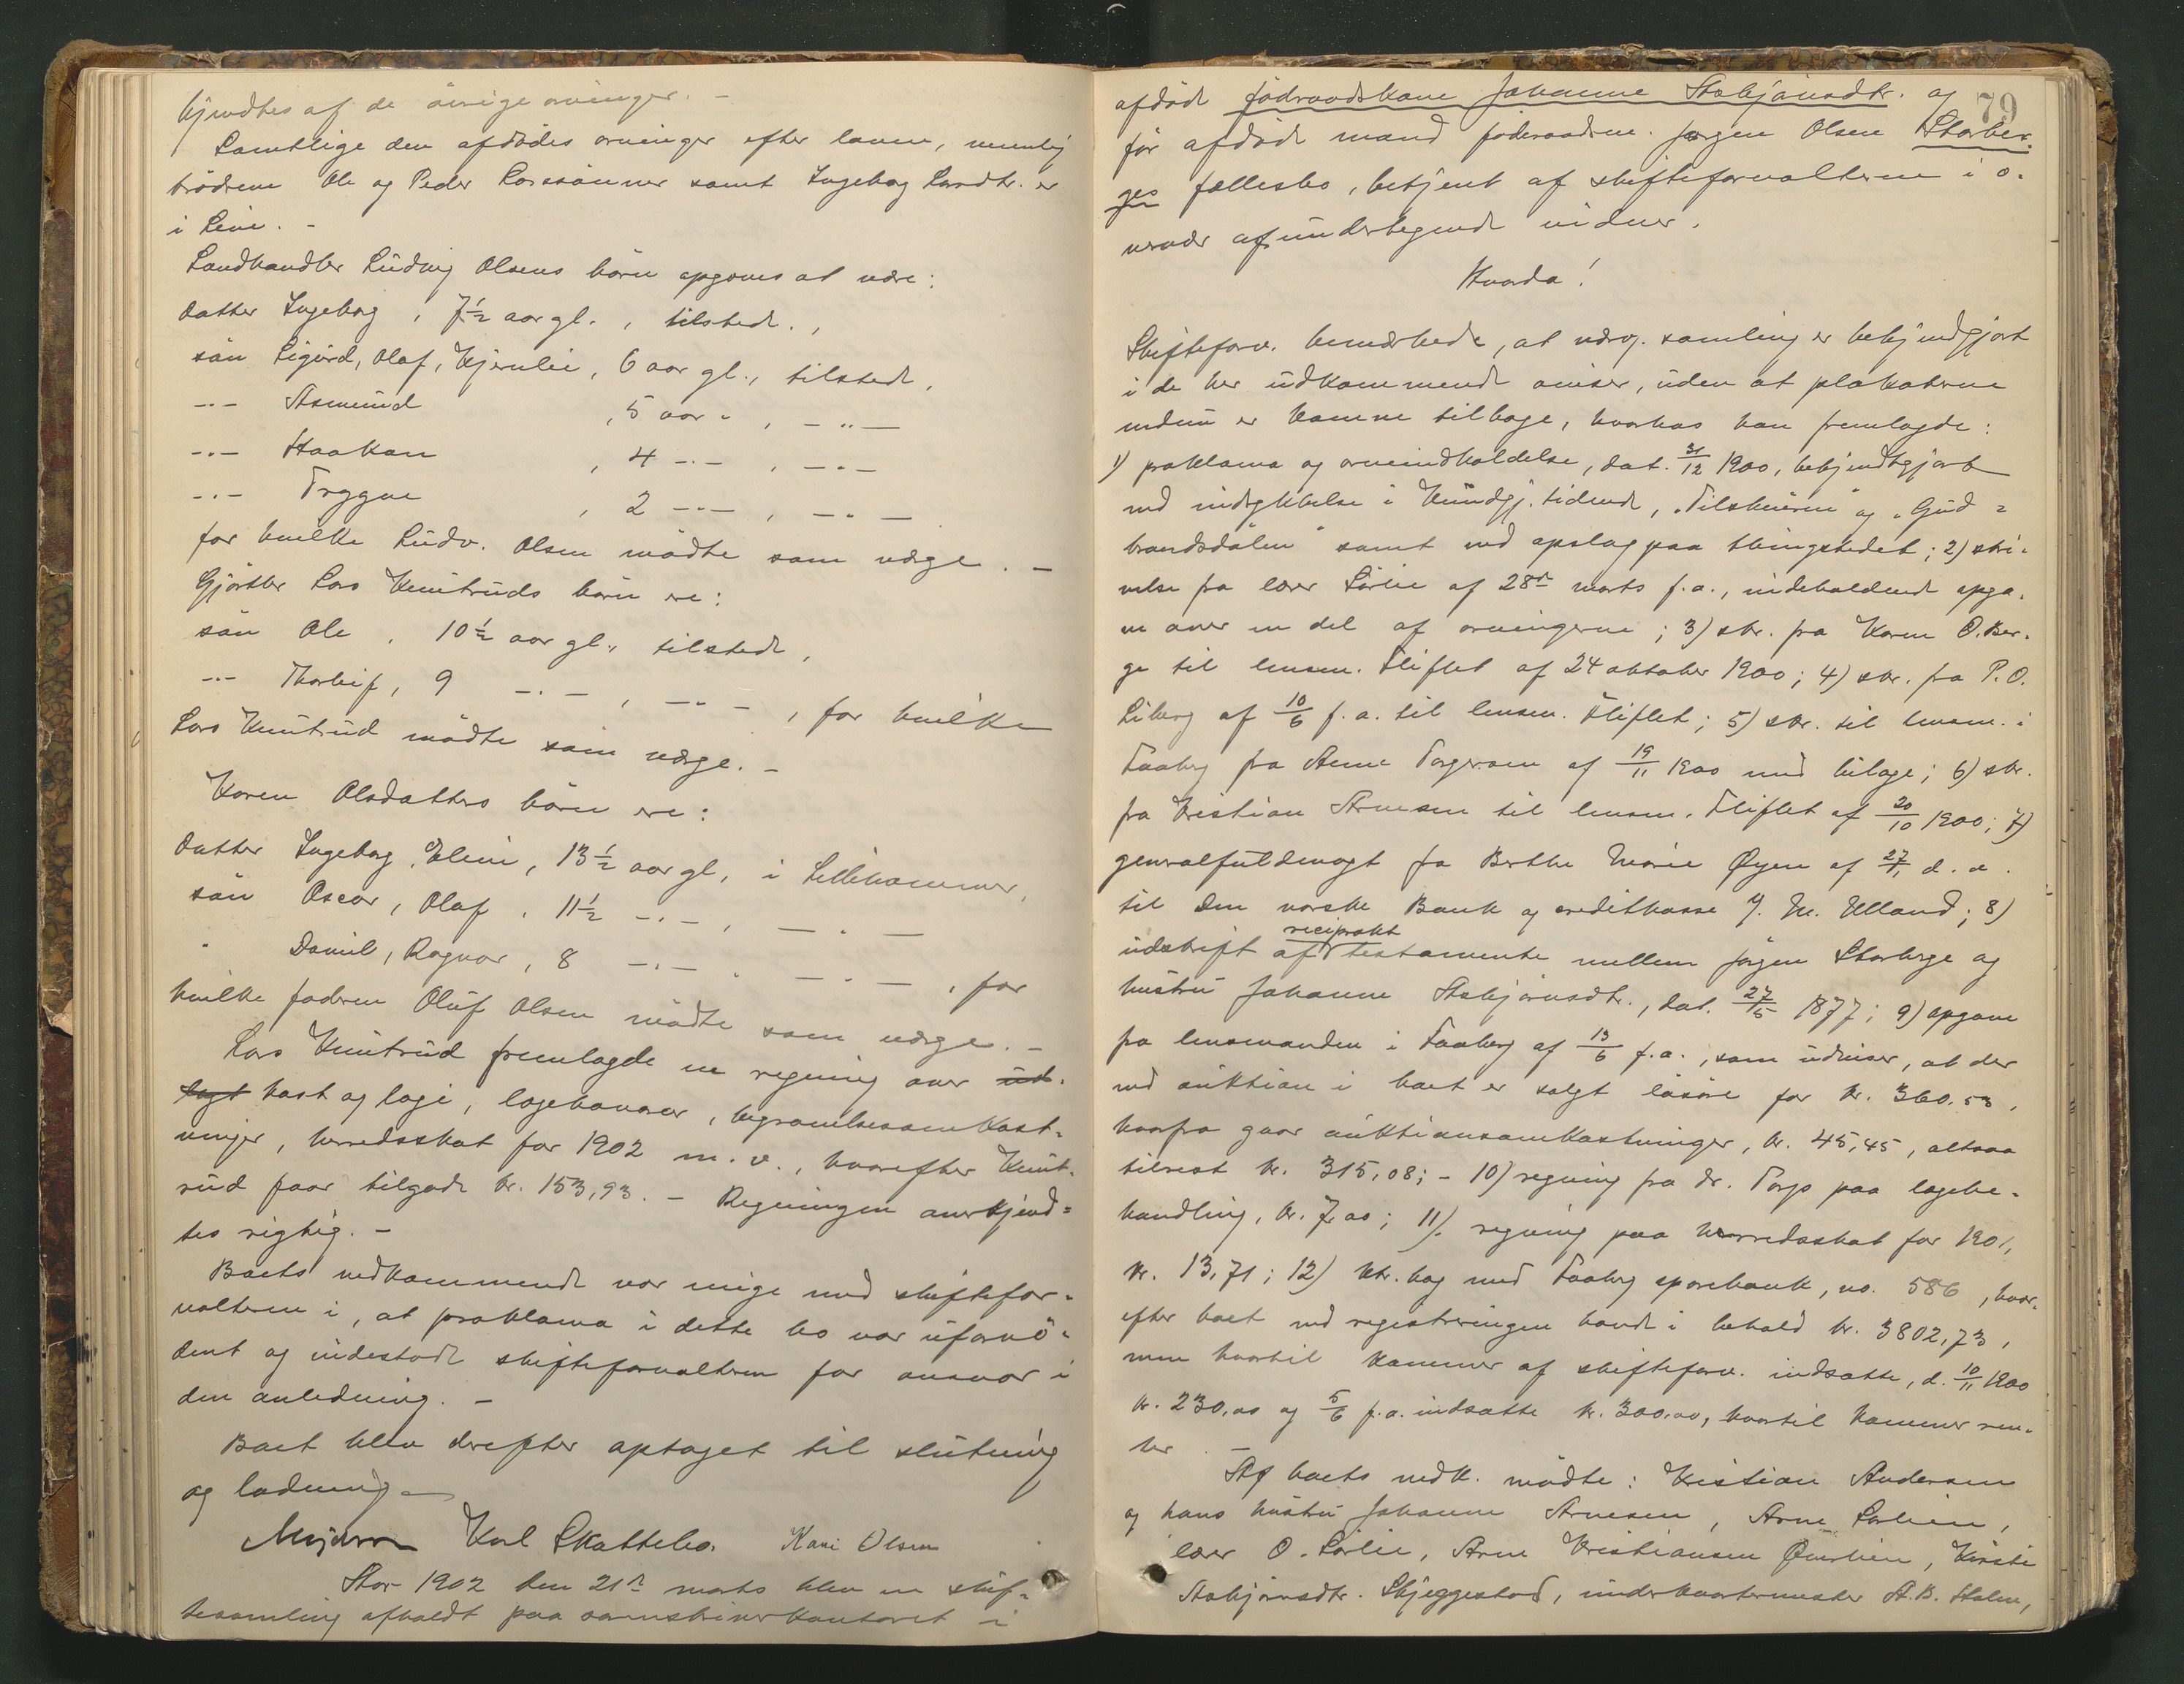 kjendtes af de øvrige arvinger. –
Samtlige den afdødes arvinger efter loven, nemlig
brødrene Ole og Peder Larssønner samt Ingeborg Larsdtr. er
i Live. –
Landhandler Ludvig Olsens børn opgaves at være:
datter Ingeborg, 7½ aar gl., tilstede.,
søn Sigurd, Olaf, Hjernlie, 6 aar gl., tilstede,
-"- Asmund , 5 aar " , – " –
-"- Haakon , 4 -"- , – " –
-"- Trygve , 2 -"- , – " –
for hvilke Ludv. Olsen mødte som værge. –
Gjørtler Lars Knutruds børn ere:
søn Ole, 10½ aar gl., tilstede,
-"- Thorleif, 9 -"- , -"- , for hvilke
Lars Knutrud mødte som værge. –
Karen Olsdatters børn ere:
datter Ingeborg, Eline, 13½ aar gl, i Lillehammer,
søn Oscar, Olaf, 11½ -"- , – " –
" Daniel, Ragnar, 8 -"- , – " – , for
hvilke faderen Oluf Olsen mødte som værge. –
Lars Knutrud fremlagde en regning over ud-
lagt kost og logi, lægehonorar, begravelsesomkost-
ninger, herredsskat for 1902 m. v., hvorefter Knut-
rud faar tilgode kr. 153,93. – Regningen anerkjend-
tes rigtig. –
Boets vedkommende var enige med skiftefor-
valteren i, at proklama i dette bo var ufornø-
dent og indestod skifteforvalteren for ansvar i
den anledning. –
Boet blev derefter optaget til slutning
og lodning.
Karl Skattebo. Kari Olsen
Aar 1902 den 21de marts blev en skif-
tesamling afholdt paa sorenskriverkontoret i
79
afdøde føderaadskone Johanne Asbjørnsdtr. og
før afdøde mand føderaadsm. Jørgen Olsen Storber-
ges fællesbo, betjent af skifteforvalteren i o-
vervær af undertegnede vidner.
Hvorda!
Skifteforv. bemærkede, at nærv. samling er bekjendtgjort
i de her udkommende aviser, uden at plakaterne
endnu er komne tilbage, hvorhos han fremlagde:
1) proklama og arveindkaldelse, dat. 31/12 1900, bekjendtgjort
ved indrykkelse i Kundgj. tidende, "Tilskueren" og "Gud-
brandsdølen" samt ved opslag paa thingstedet; 2) skri-
velse fra lærer Sørlie af 28de marts f. a., indeholdende opga-
ve over en del af arvingerne; 3) skr. fra Karen O. Ber-
ge til lensm. Fliflet af 24 oktober 1900; 4) skr. fra P. O.
Liberg af 10/6 f. a. til lensm. Fliflet; 5) skr. til lensm. i
Faaberg fra Anne Torgersen af 19/11 1900 med bilage; 6) skr.
fra Kristian Arnesen til lensm. Fliflet af 20/10 1900; 7)
generalfuldmagt fra Berthe Marie Øyen af 27/1 d. a.
til Den norske Bank og creditkasse J. M. Ulland; 8)
udskrift af reciprokt testamente mellem Jørgen Storberge og
hustru Johanne Asbjørnsdtr., dat. 27/5 1877; 9) opgave
fra lensmanden i Faaberg af 13/6 f. a., som udviser, at der
ved auktion i boet er solgt løsøre for kr. 360.53,
hvorfra gaar auktionsomkostninger, kr. 45,45, altsaa
tilrest kr. 315,08; – 10) regning fra dr. Torp paa lægebe-
handling, kr. 7,00; 11). regning paa herredsskat for 1901,
kr. 13,71; 12) ktr. bog med Faaberg sparebank, no. 586, hvor-
efter boet ved registreringen havde i behold kr. 3802,73,
men hvortil kommer af skifteforv. indsatte, d. 10/11 1900
kr. 230,00 og 5/6 f. a. indsatte kr. 300.00, hvortil kommer ren-
ter. –
Af boets vedk. mødte: Kristian Andersen
og hans hustru Johanne Arnesen, Arne Sørlien,
lærer O. Sørlie, Arne Kristiansen Øverlien, Kirsti
Asbjørnsdtr. Skjeggestad, underkvartermester A. B. Holm,